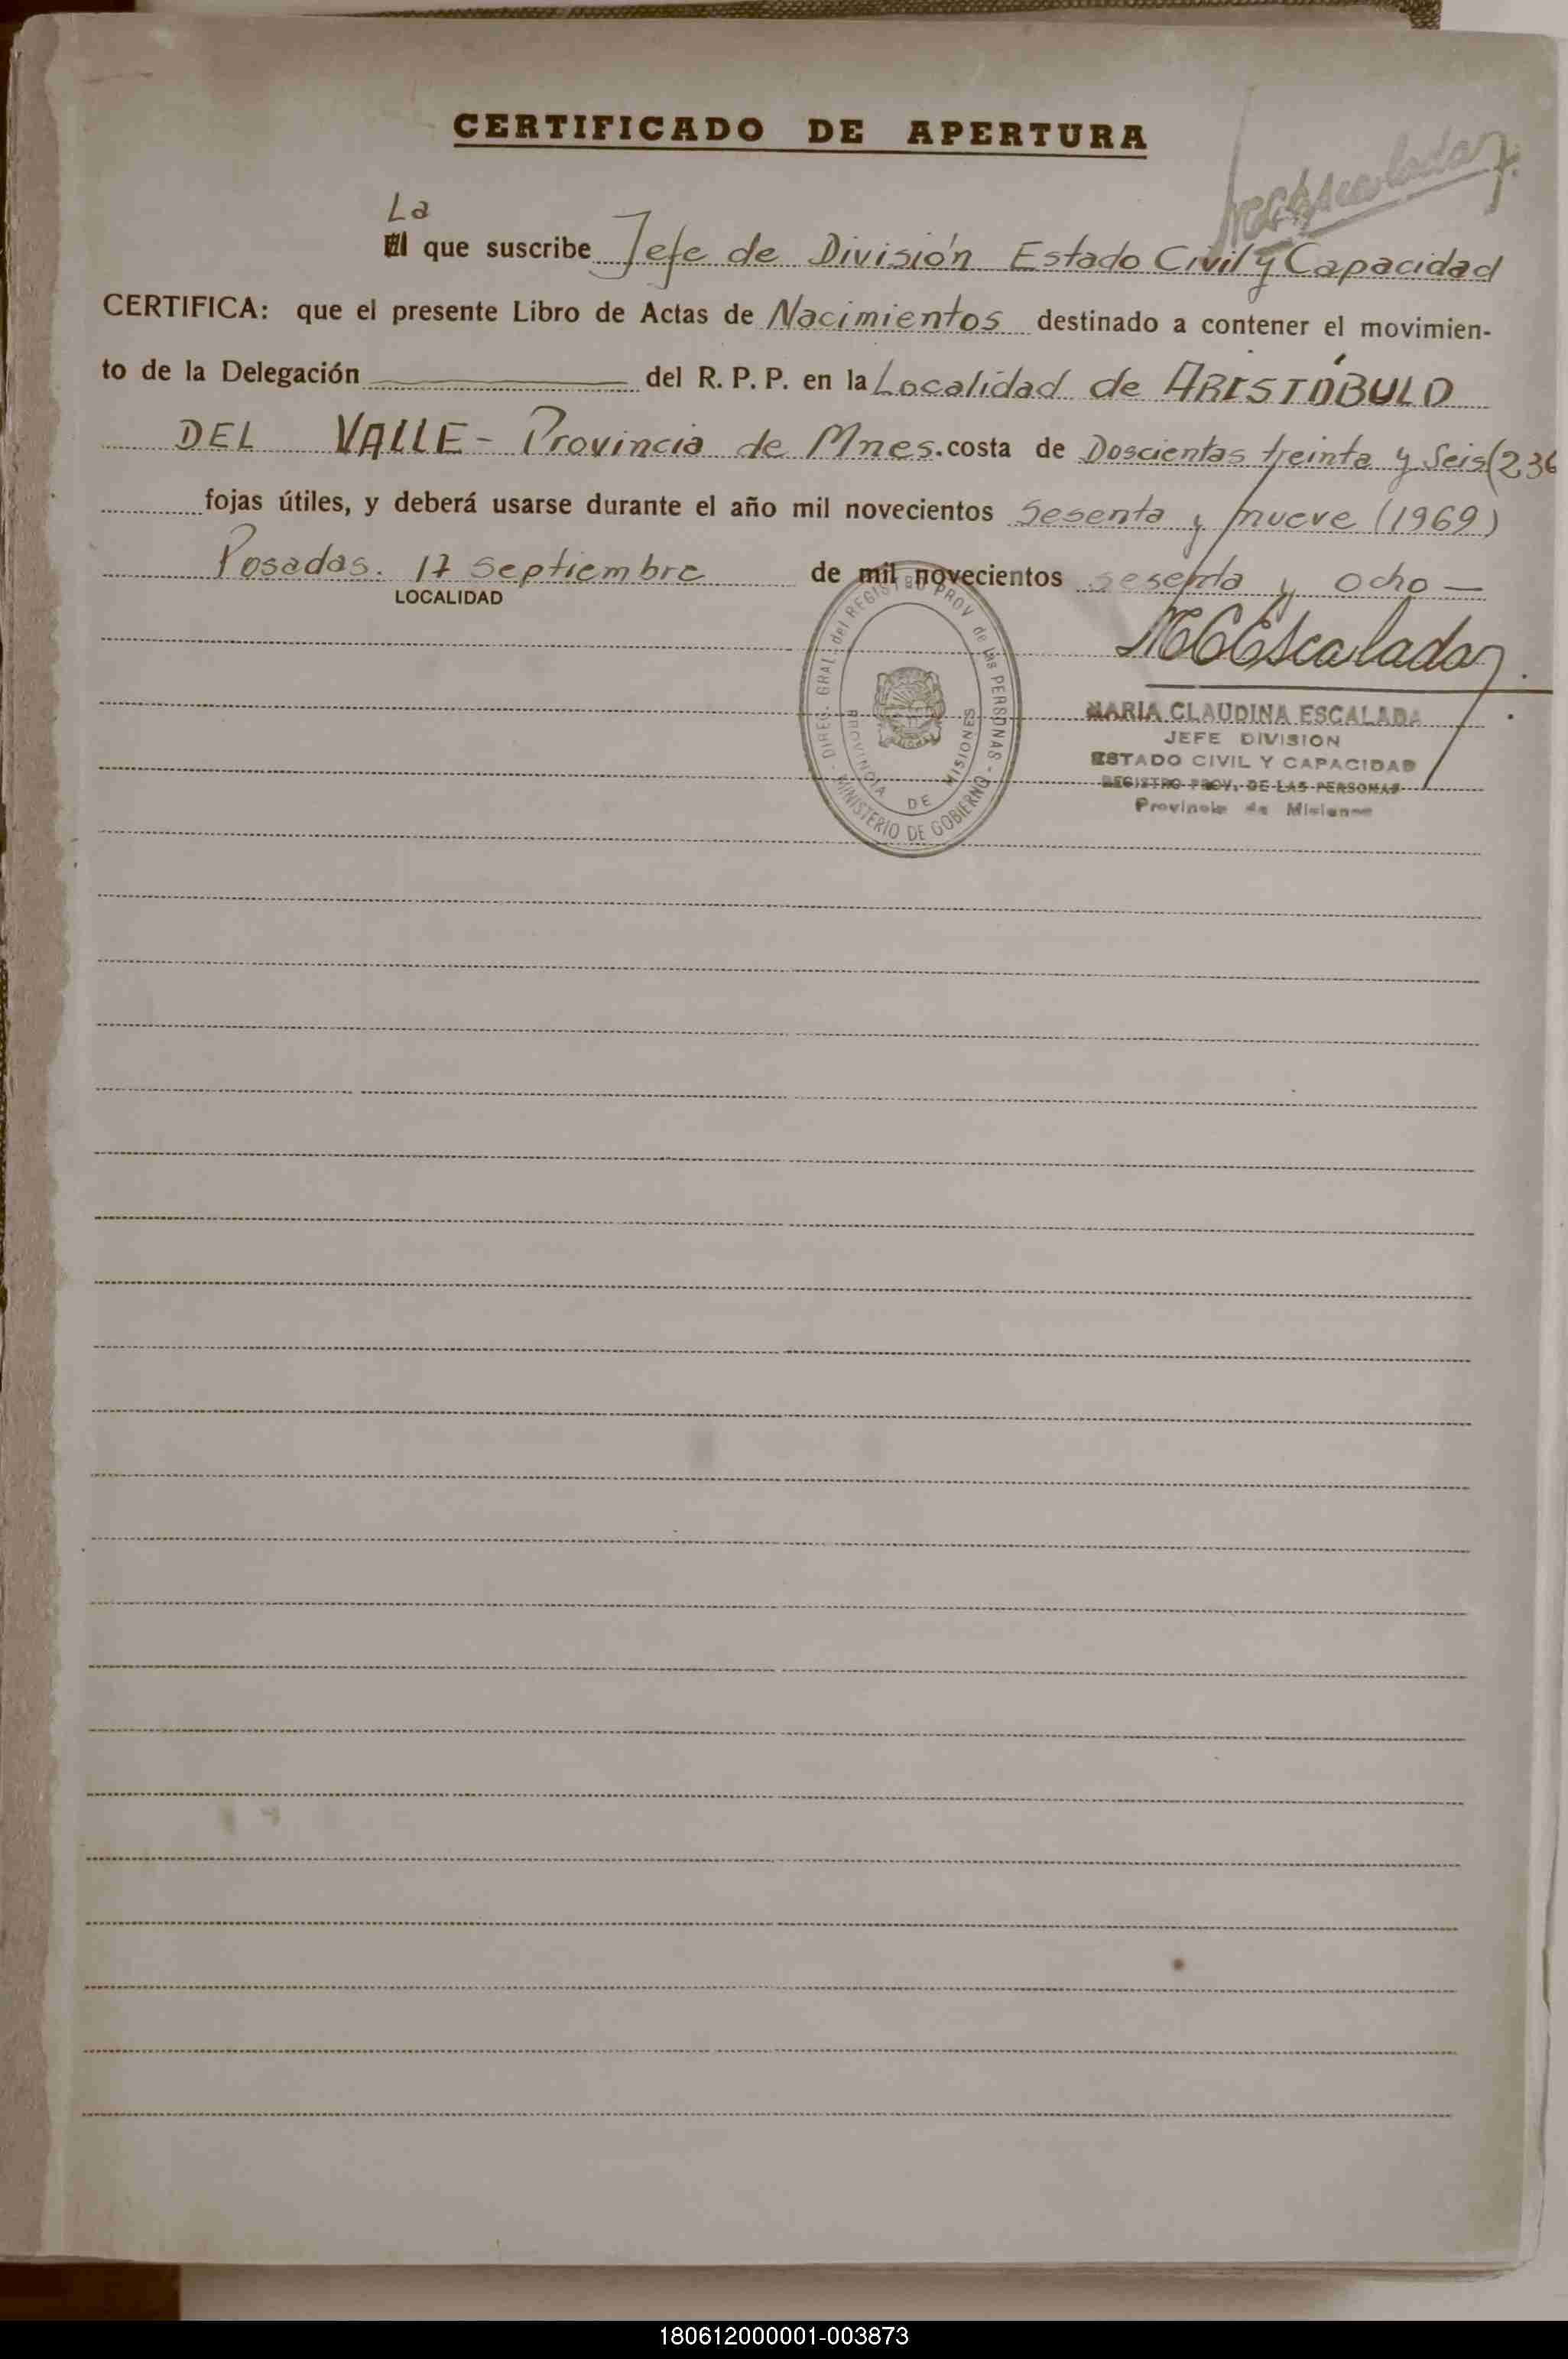 CERTIFICADO DE APERTURA
MCEscalada
La
El que suscribe Jefe de División Estado Civil y Capacidad
CERTIFICA: que el presente Libro de Actas de Nacimientos destinado a contener el movimien-
to de la Delegación del R. P. P. en la Localidad de ARISTÓBULO
DEL VALLE - Provincia de Mnes. costa de Doscientas treinta y Seis (236
fojas útiles, y deberá usarse durante el año mil novecientos Sesenta y nueve (1969)
Posadas. 17 Septiembre de mil novecientos sesenta y ocho —
LOCALIDAD
MCEscalada
DIREC. GRAL. del REGISTRO PROV de las PERSONAS - MINISTERIO DE GOBIERNO -
PROVINCIA DE MISIONES
MARIA CLAUDINA ESCALADA
JEFE DIVISION
ESTADO CIVIL Y CAPACIDAD
REGISTRO PROV. DE LAS PERSONAS
Provincia de Misiones
180612000001-003873